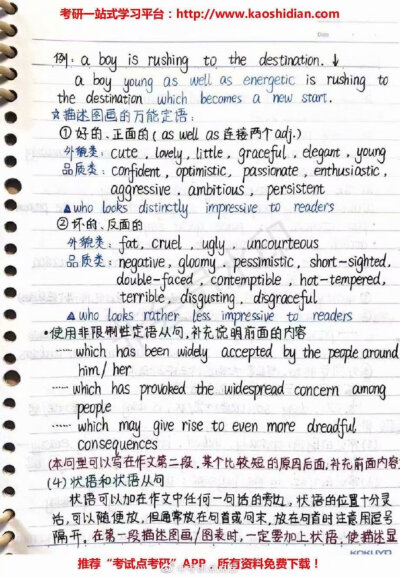 考研一站式学习平台：http://www.kaoshidian.com/
Date
例：a boy is rushing to the destination. ↓
a boy young as well as energetic is rushing to
the destination which becomes a new start.
☆描述图画的万能定语：
①好的、正面的(as well as 连接两个adj.)
外貌类：cute, lovely, little, graceful, elegant, young
品质类：confident, optimistic, passionate, enthusiastic,
aggressive, ambitious, persistent
▲who looks distinctly impressive to readers
②坏的、反面的
外貌类：fat, cruel, ugly, uncourteous
品质类：negative, gloomy, pessimistic, short-sighted,
double-faced, contemptible, hot-tempered,
terrible, disgusting, disgraceful
▲who looks rather less impressive to readers
•使用非限制性定语从句，补充说明前面的内容
······which has been widely accepted by the people around
him/her
······which has provoked the widespread concern among
people
······which may give rise to even more dreadful
consequences
(本句型可以写在作文第二段，某个比较短的原因后面，补充前面内容
(4)状语和状语从句
状语可以加在作文中任何一句话的旁边，状语的位置十分灵
活，可以随便放，但通常放在句首或句末，放在句首时注意用逗号
隔开。在第一段描述图画/图表时，一定要加上状语，使描述显
KOKUYO
推荐“考试点考研”APP，所有资料免费下载！